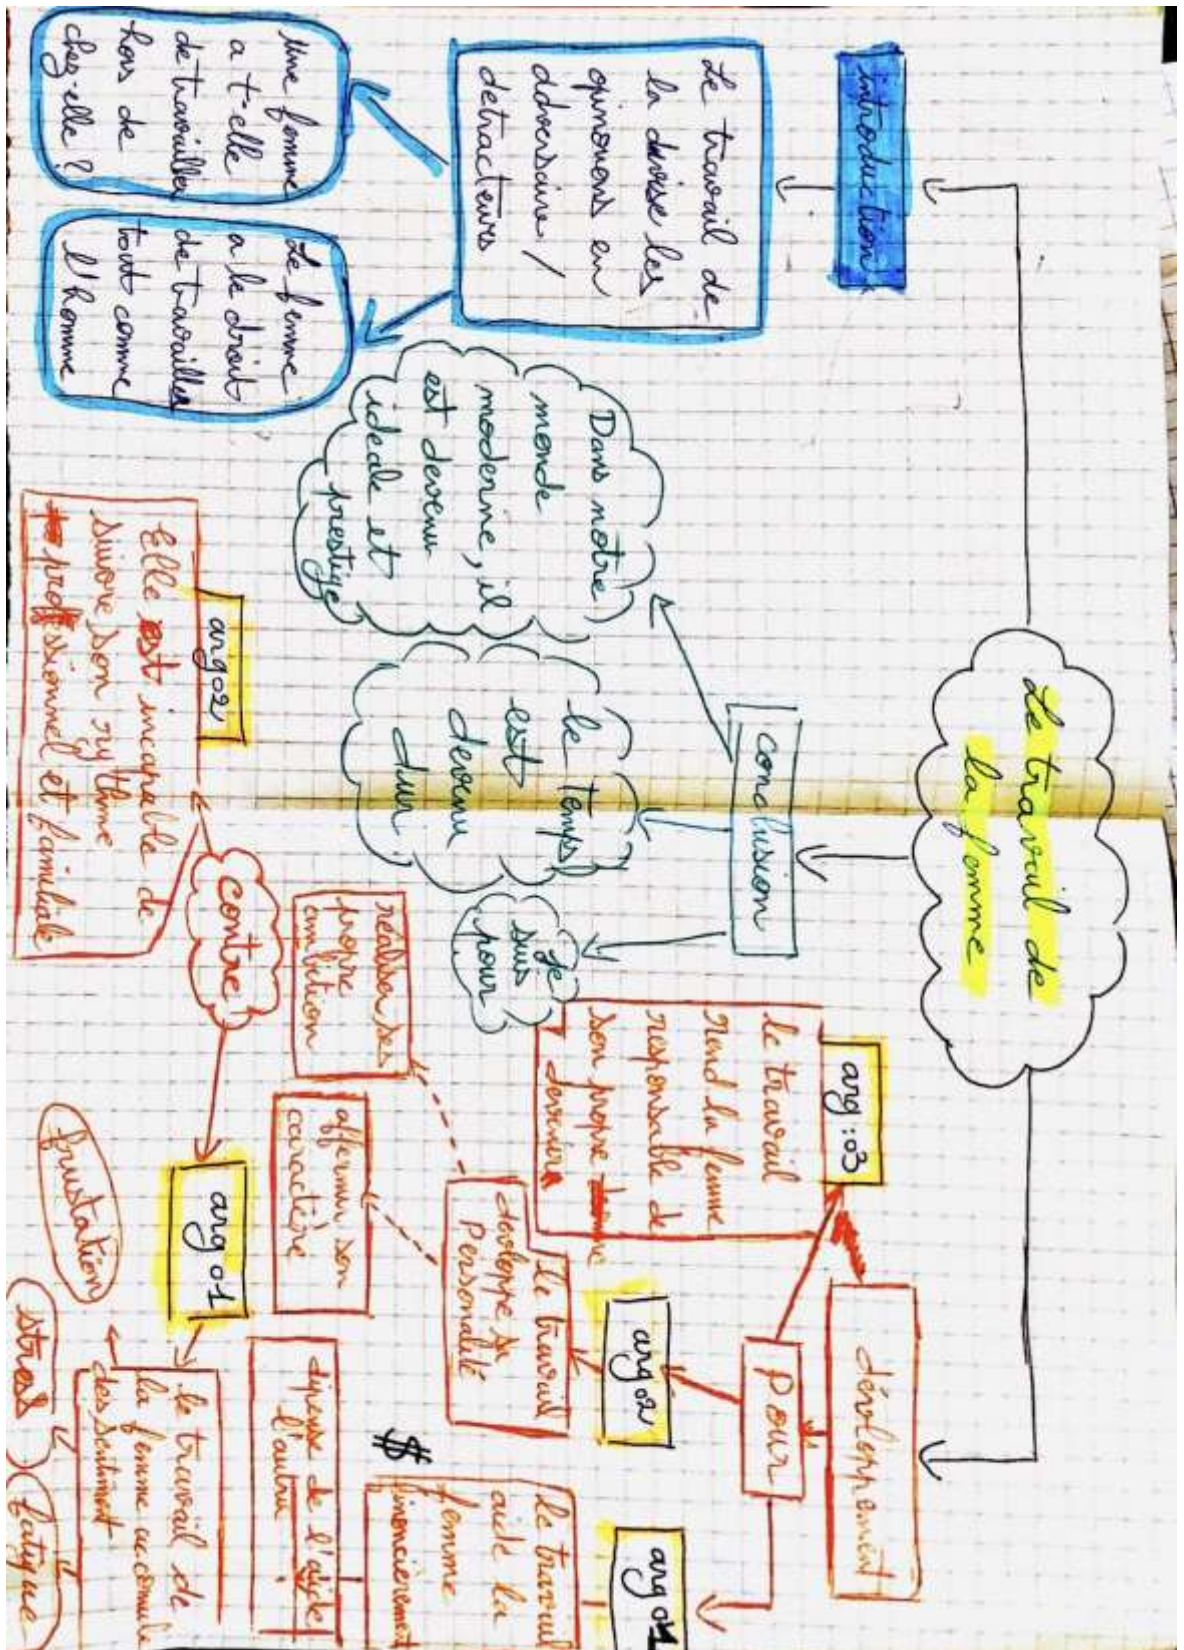 Le travail de
la femme
introduction
Le travail de
la divise les
opinions en
adversaire /
detracteurs
Une femme
a t-elle
de travailler
hors de
chez-elle ?
Le femme
a le droit
de travailler
tout comme
l'homme
conclusion
Dans notre
monde
moderne, il
est devenu
ideale et
prestige
le temps
est
devenu
dur
Je
suis
pour
dévloppement
Pour
arg 01
Le travail
aide la
femme
finencièrement
dipense de l'aide
l'autrui.
$
arg 02
le travail
devloppe sa
Personalité
réaliser ses
propre
ambition
affermir son
caractère
arg : 03
le travail
rend la femme
responsable de
son propre
devenir
contre
arg 01
le travail de
la femme accumule
des sentiment
frustation
stress
fatigue
arg 02
Elle est incapable de
suivre son rythme
professionnel et familiale